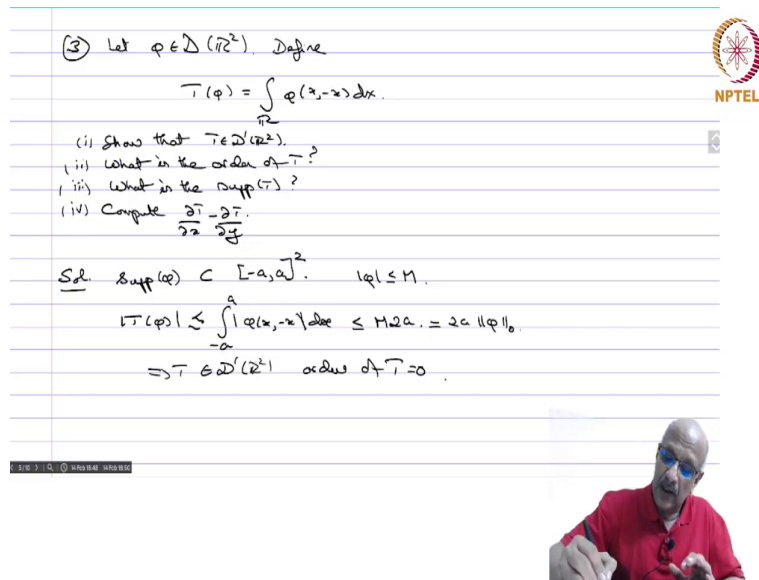 ③ Let φ ∈ D(ℝ²). Define
T(φ) = ∫_ℝ φ(x,-x) dx.
(i) Show that T ∈ D'(ℝ²).
(ii) What is the order of T?
(iii) What is the supp(T)?
(iv) Compute ∂T/∂x - ∂T/∂y.
Sol. supp(φ) ⊂ [-a,a]². |φ| ≤ M.
|T(φ)| ≤ ∫_{-a}^{a} |φ(x,-x)| dx ≤ M2a. = 2a ‖φ‖₀.
⇒ T ∈ D'(ℝ²) order of T = 0.
NPTEL